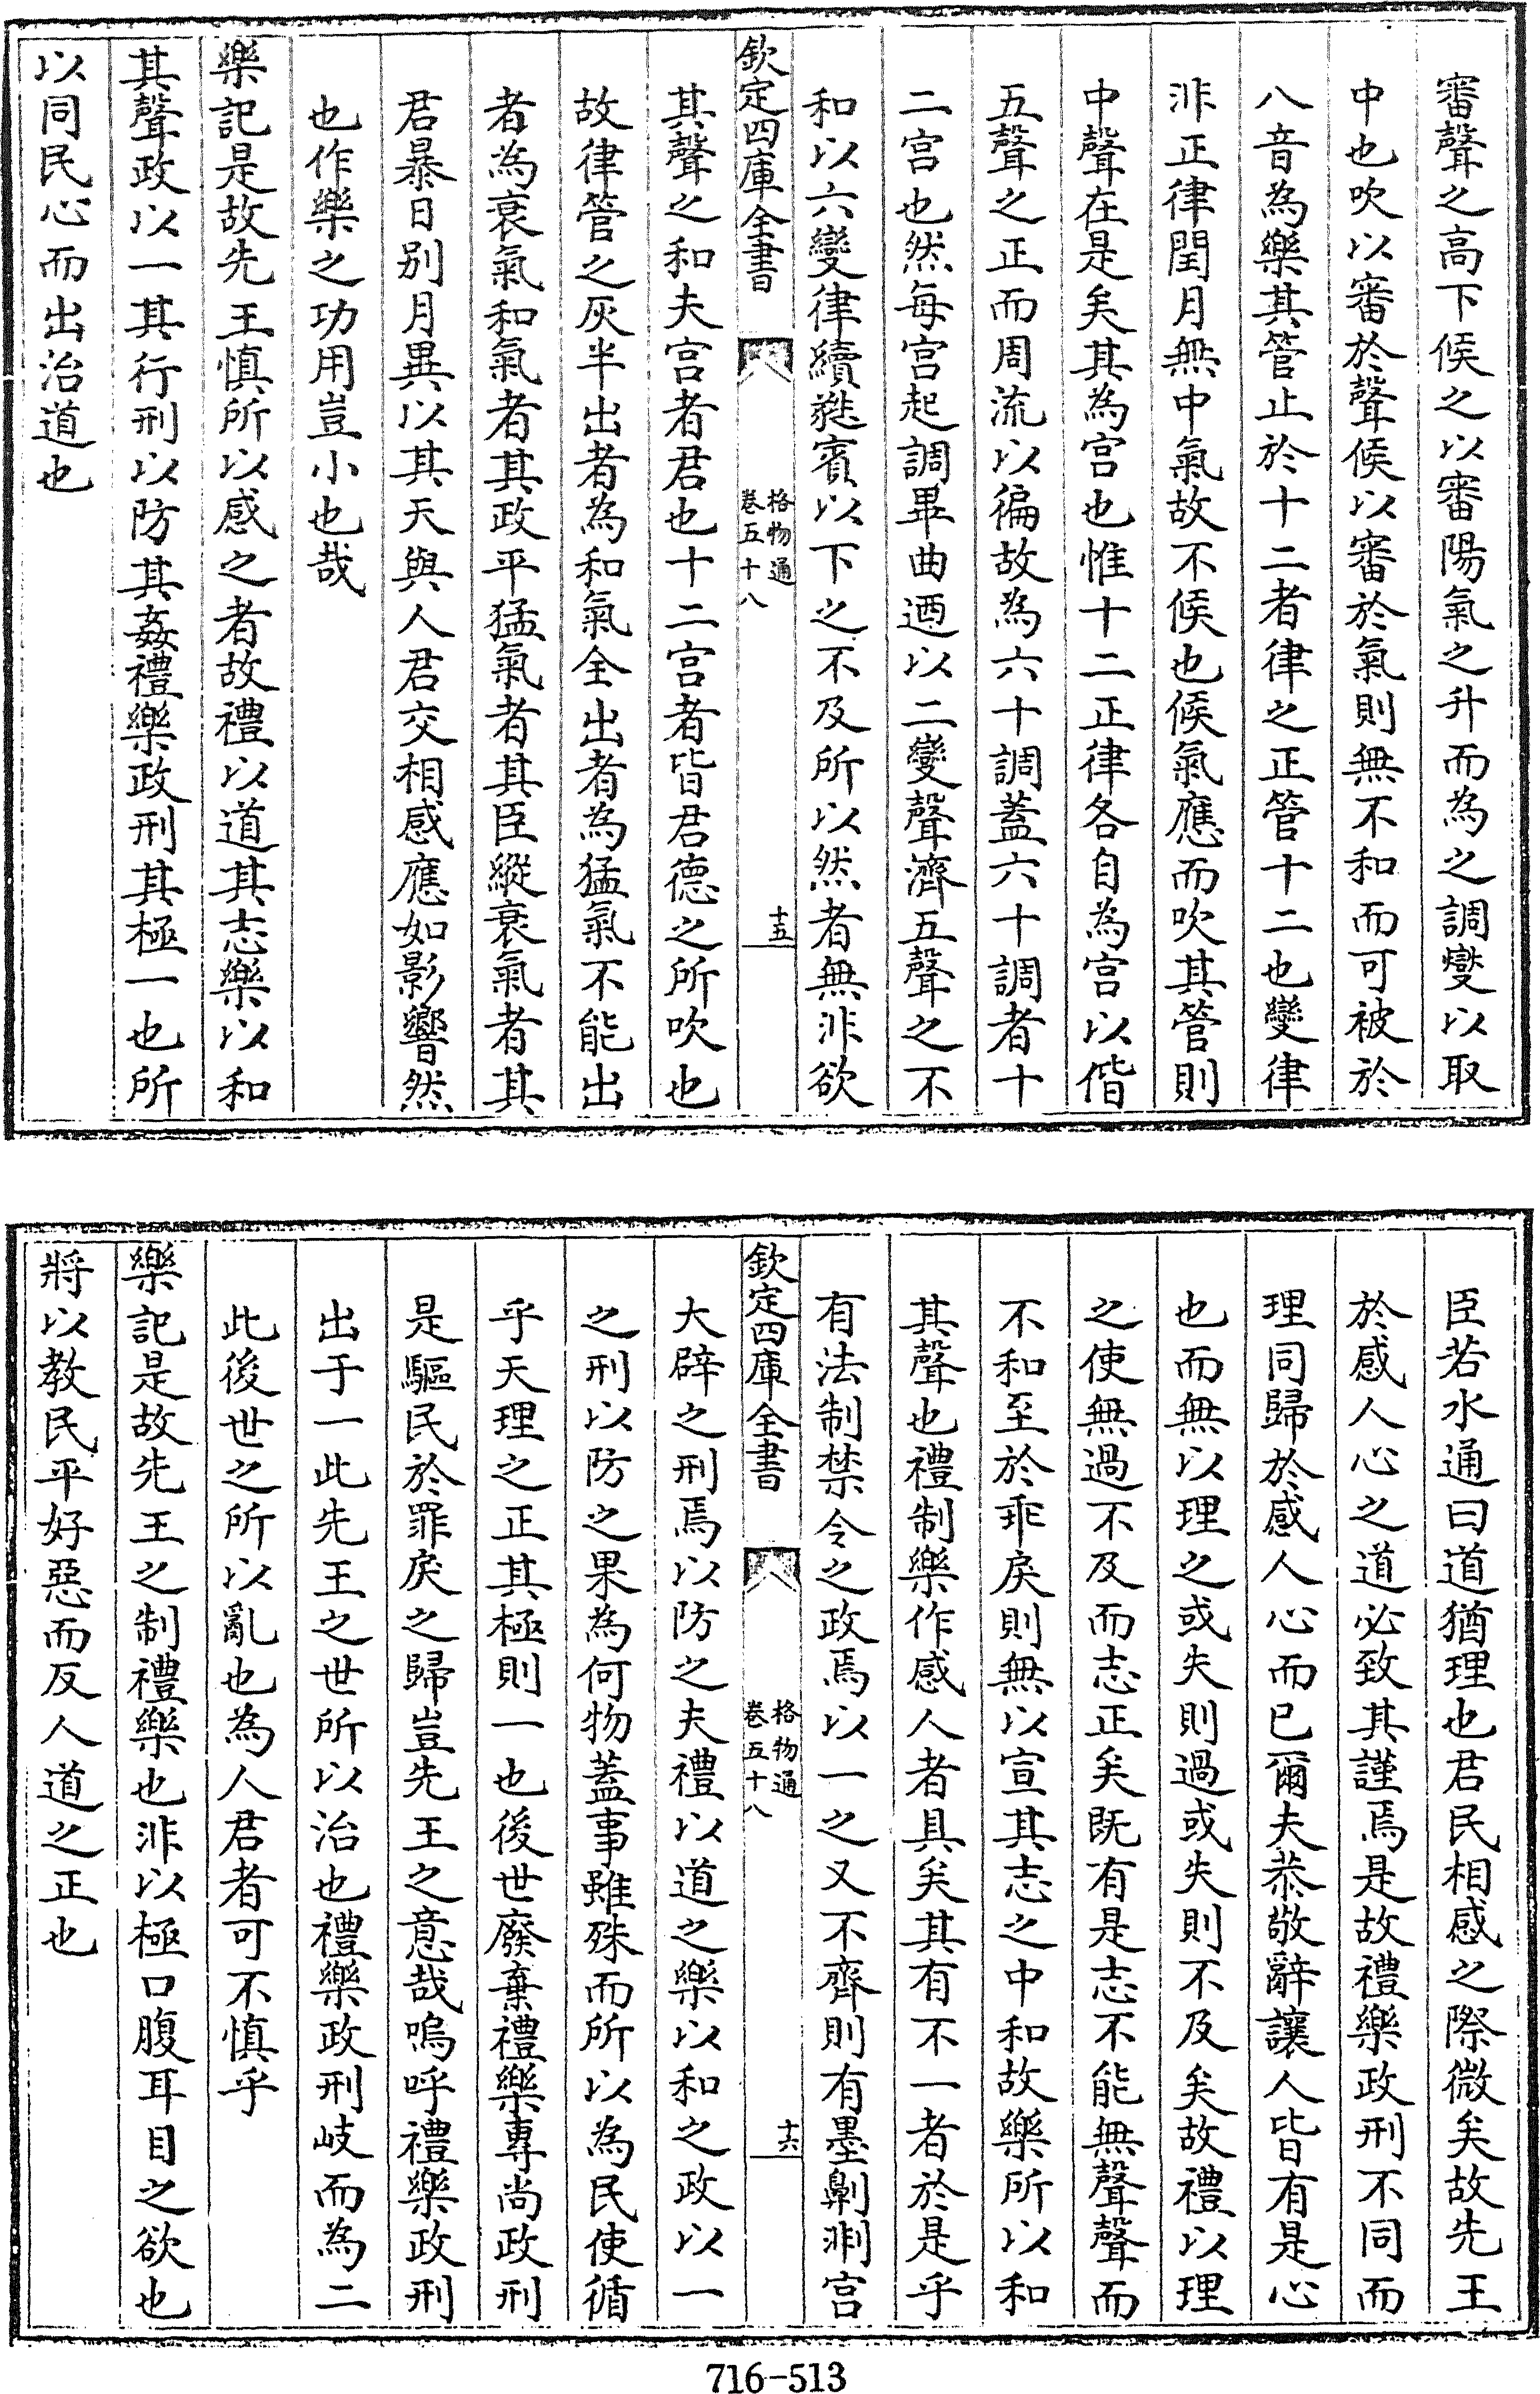 審聲之高下候之以審陽氣之升而為之調爕以取
中也吹以審於聲候以審於氣則無不和而可被於
八音為樂其管止於十二者律之正管十二也變律
非正律閏月無中氣故不候也候氣應而吹其管則
中聲在是矣其為宫也惟十二正律各自為宫以偕
五聲之正而周流以徧故為六十調蓋六十調者十
二宫也然每宫起調畢曲迺以二變聲濟五聲之不
和以六變律續蕤賓以下之不及所以然者無非欲
欽定四庫全書
格物通
卷五十八
十五
其聲之和夫宫者君也十二宫者皆君德之所吹也
故律管之灰半出者為和氣全出者為猛氣不能出
者為衰氣和氣者其政平猛氣者其臣縱衰氣者其
君暴日别月異以其天與人君交相感應如影響然
也作樂之功用豈小也哉
樂記是故先王慎所以感之者故禮以道其志樂以和
其聲政以一其行刑以防其姦禮樂政刑其極一也所
以同民心而出治道也
臣若水通曰道猶理也君民相感之際微矣故先王
於感人心之道必致其謹焉是故禮樂政刑不同而
理同歸於感人心而已爾夫恭敬辭讓人皆有是心
也而無以理之或失則過或失則不及矣故禮以理
之使無過不及而志正矣既有是志不能無聲聲而
不和至於乖戾則無以宣其志之中和故樂所以和
其聲也禮制樂作感人者具矣其有不一者於是乎
有法制禁令之政焉以一之又不齊則有墨劓剕宫
欽定四庫全書
格物通
卷五十八
十六
大辟之刑焉以防之夫禮以道之樂以和之政以一
之刑以防之果為何物蓋事雖殊而所以為民使循
乎天理之正其極則一也後世廢棄禮樂專尚政刑
是驅民於罪戾之歸豈先王之意哉嗚呼禮樂政刑
出于一此先王之世所以治也禮樂政刑岐而為二
此後世之所以亂也為人君者可不慎乎
樂記是故先王之制禮樂也非以極口腹耳目之欲也
將以教民平好惡而反人道之正也
716-513